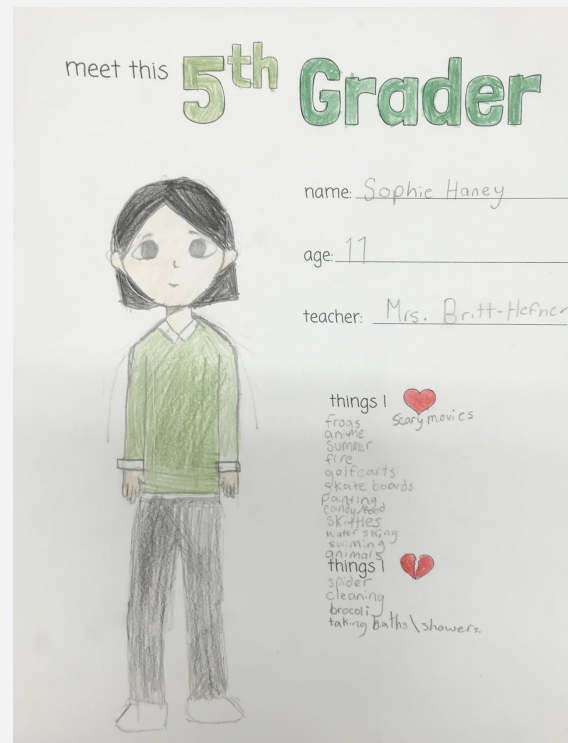 meet this 5th Grader
name: Sophie Haney
age: 11
teacher: Mrs. Britt-Hefner
things I
frogs scary movies
anime
summer
fire
golfcarts
skate boards
panting
candy/food
skittles
water skiing
swiming
animals
things I
spider
cleaning
brocoli
taking baths\showers.